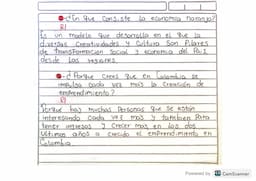 -¿En que consiste la economía naranja?
R/
Es un modelo que desarrolla en el que la
diversas creatividades y cultura son Pilares
de transformacion social y economia del País
desde las regiones.
-¿Porque crees que en Colombia se
impulsa cada vez mas la creación de
emprendimiento?
R/
Porque hay muchas Personas que se estan
interesando cada vez mas y tambien Para
tener intereses y crecer mas en los dos
ultimos años a crecido el emprendimiento en
Colombia
Powered by CS CamScanner